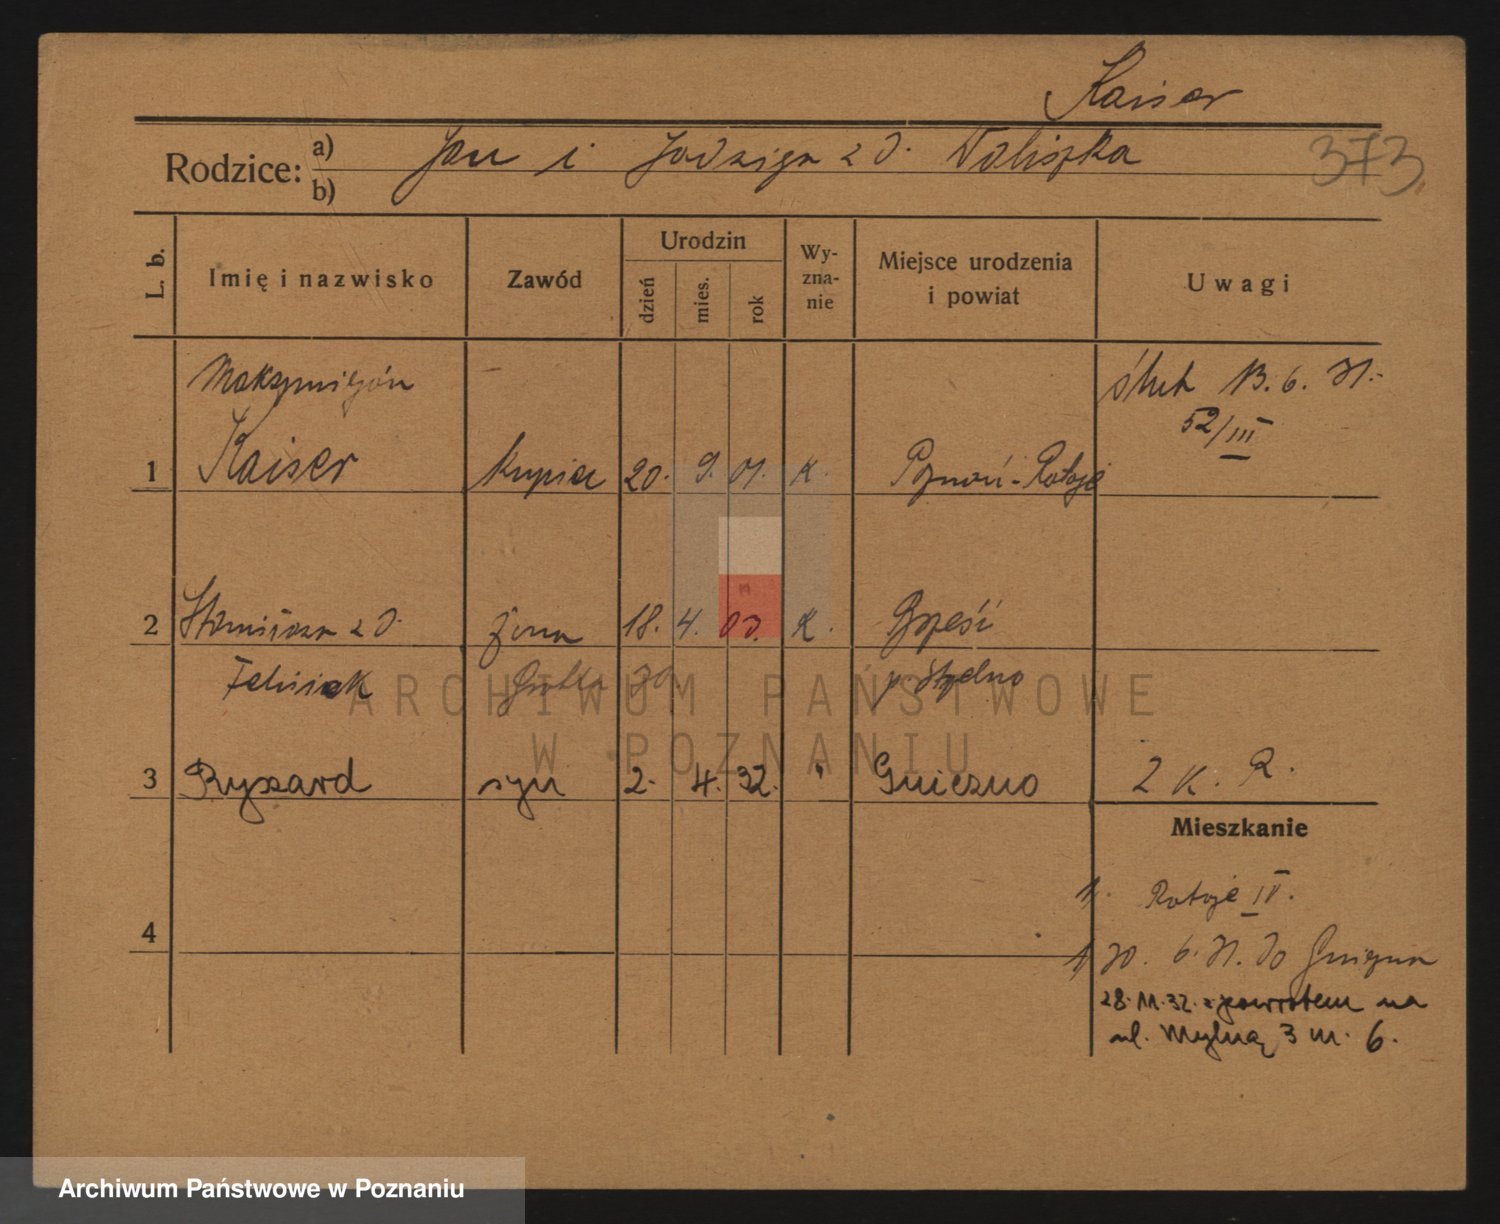 Kaiser
Rodzice: a) Jan i Jadwiga z d. Waliszka
b)
373
L. b. Imię i nazwisko Zawód Urodzin dzień mies. rok Wyznanie Miejsce urodzenia i powiat Uwagi
Maksymiljan ślub 13. 6. 31.-
52/III
1 Kaiser kupiec 20. 9. 01. K. Poznań-Rataje
2 Stanisława z d. żona 18. 4. 09. K.
p.
3 Ryszard syn 2. 4. 32. " Gniezno 2 K. R.
Mieszkanie
1, Rataje IV.
4
1, 30. 6. 31. do Gniezna
28.11.32. z powrotem na
ul. Mylną 3 m. 6.
ARCHIWUM PAŃSTWOWE
W POZNANIU
Archiwum Państwowe w Poznaniu